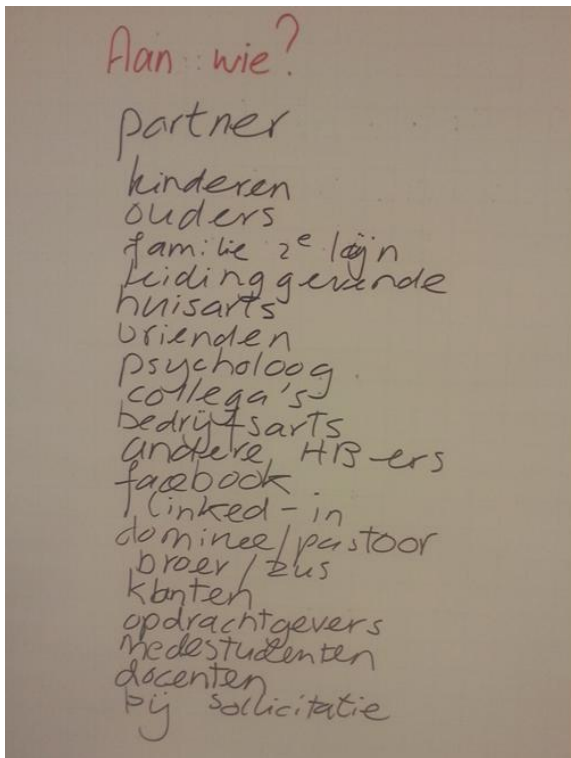 Aan wie?
partner
kinderen
ouders
familie 2e lijn
leidinggevende
huisarts
vrienden
psycholoog
collega's
bedrijfsarts
andere HB-ers
facebook
linked-in
dominee/pastoor
broer/zus
klanten
opdrachtgevers
medestudenten
docenten
bij sollicitatie